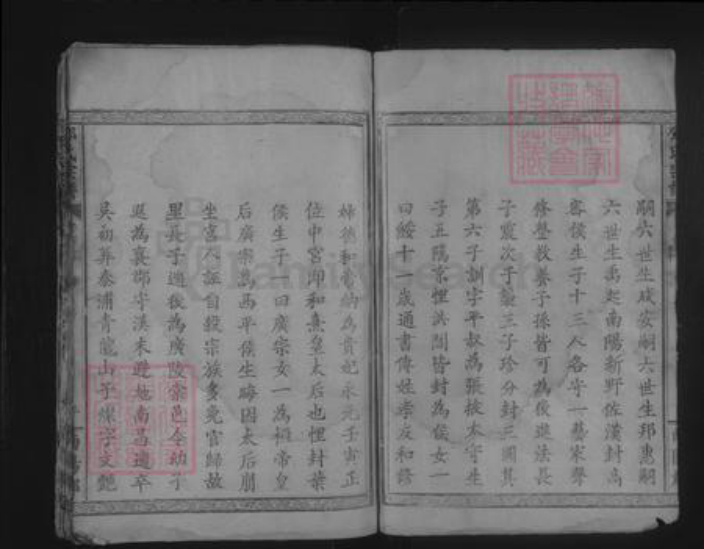 嗣六世生咸安嗣六世生邦惠嗣
六世生禹起南陽新野佐漢封高
密侯生子十三人各守一藝家聲
修整教養子孫皆可為後進法長
子震次子襲三子珍分封三國其
第六子訓字平叔為張掖太守生
子五隲京悝弘閶皆封為侯女一
曰綏十一歲通書傳姓孝友和諺
婦德和帝納為貴妃永元壬寅正
位中宮即和熹皇太后也悝封葉
侯生子一曰廣宗女一為桓帝皇
后廣宗為西平侯生晦因太后崩
坐宮人誣自殺宗族多免官歸故
里長子過後為廣陵索邑令幼子
遐為襄鄉守漢末避地南昌遺卒
吳初葬奉浦青龍山子
字文
FamilySearch